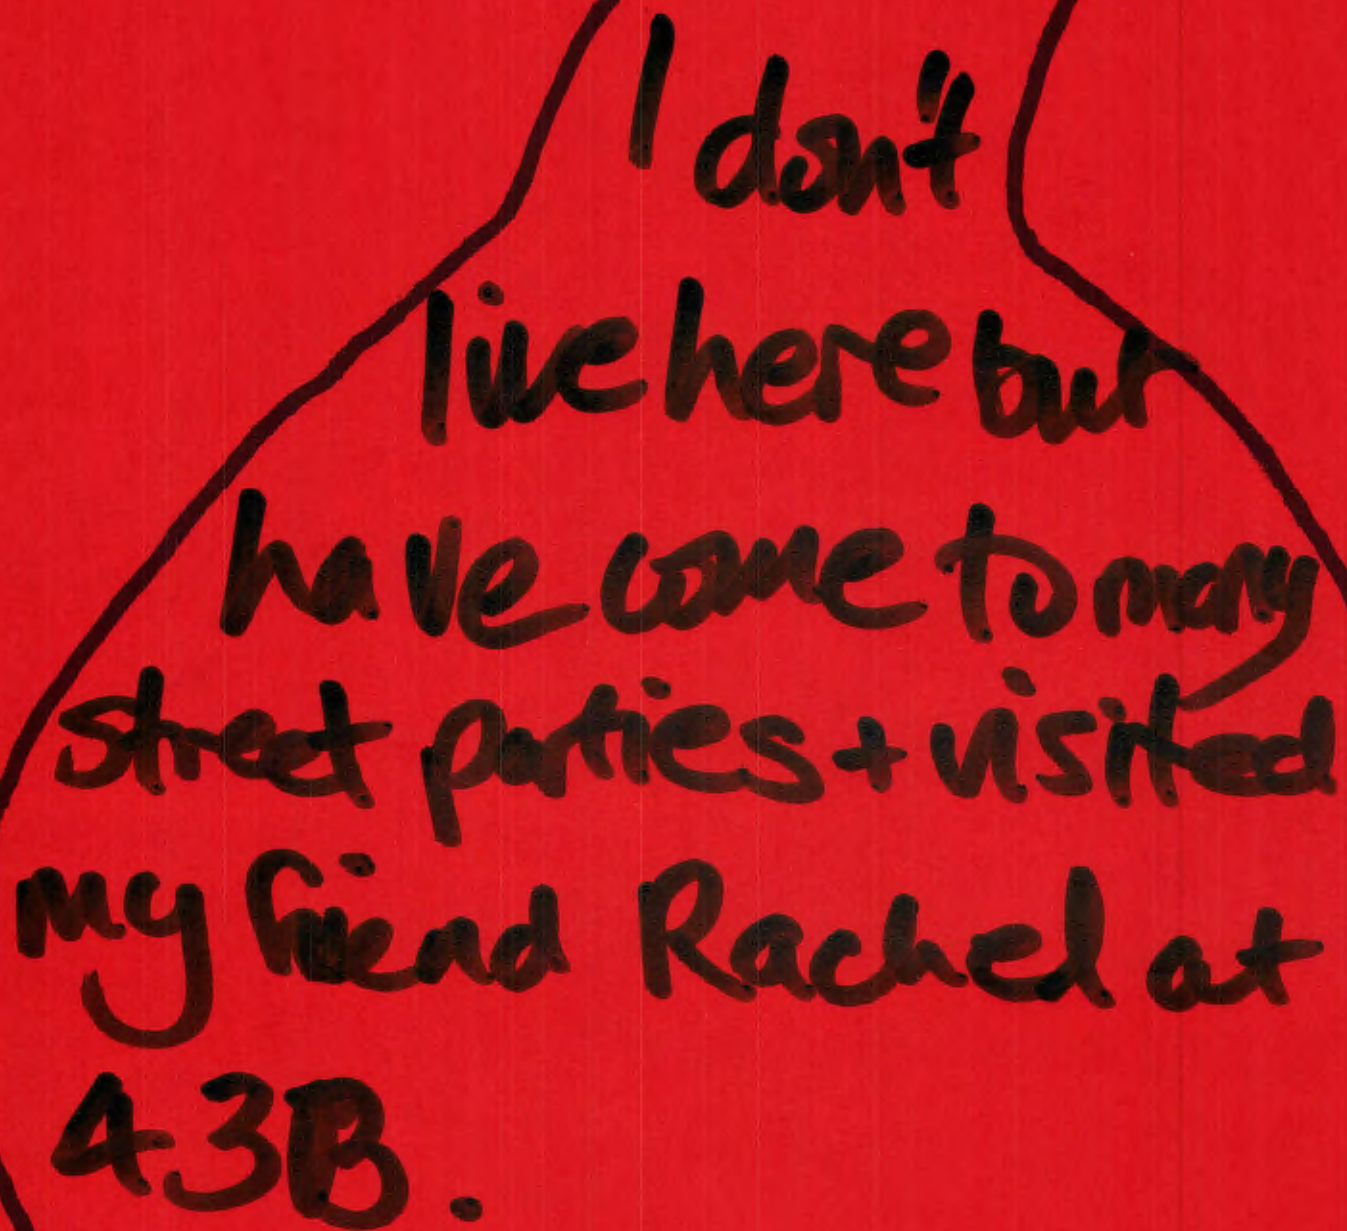 I don't
live here but
have come to many
street parties + visited
my friend Rachel at
43B.